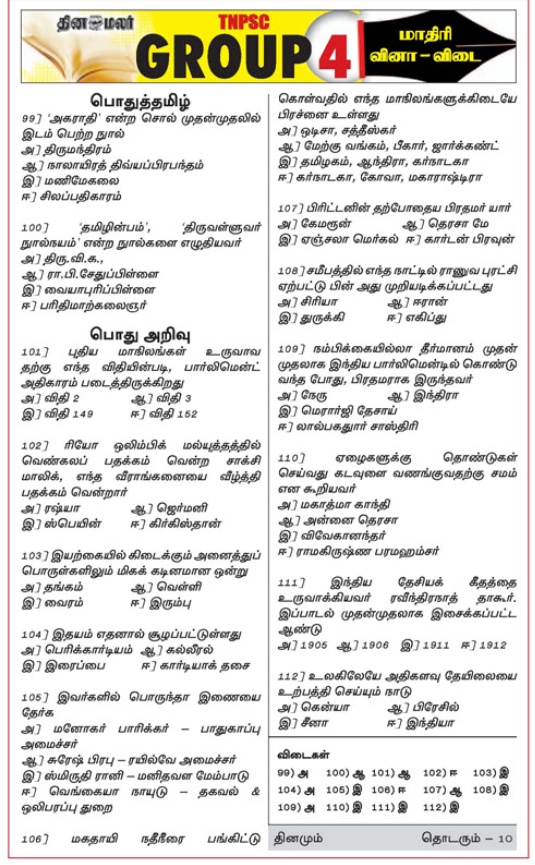 தினமலர்
TNPSC
GROUP 4
மாதிரி
வினா - விடை
பொதுத்தமிழ்
99] 'அகராதி' என்ற சொல் முதன்முதலில்
இடம் பெற்ற நூல்
அ] திருமந்திரம்
ஆ] நாலாயிரத் திவ்யப்பிரபந்தம்
இ] மணிமேகலை
ஈ] சிலப்பதிகாரம்
100] 'தமிழின்பம்', 'திருவள்ளுவர்
நுால்நயம்' என்ற நுால்களை எழுதியவர்
அ] திரு.வி.க.,
ஆ] ரா.பி.சேதுப்பிள்ளை
இ] வையாபுரிப்பிள்ளை
ஈ] பரிதிமாற்கலைஞர்
பொது அறிவு
101] புதிய மாநிலங்கள் உருவாவ
தற்கு எந்த விதியின்படி, பார்லிமென்ட்
அதிகாரம் படைத்திருக்கிறது
அ] விதி 2 ஆ] விதி 3
இ] விதி 149 ஈ] விதி 152
102] ரியோ ஒலிம்பிக் மல்யுத்தத்தில்
வெண்கலப் பதக்கம் வென்ற சாக்சி
மாலிக், எந்த வீராங்கனையை வீழ்த்தி
பதக்கம் வென்றார்
அ] ரஷ்யா ஆ] ஜெர்மனி
இ] ஸ்பெயின் ஈ] கிர்கிஸ்தான்
103] இயற்கையில் கிடைக்கும் அனைத்துப்
பொருள்களிலும் மிகக் கடினமான ஒன்று
அ] தங்கம் ஆ] வெள்ளி
இ] வைரம் ஈ] இரும்பு
104] இதயம் எதனால் சூழப்பட்டுள்ளது
அ] பெரிக்கார்டியம் ஆ] கல்லீரல்
இ] இரைப்பை ஈ] கார்டியாக் தசை
105] இவர்களில் பொருந்தா இணையை
தேர்க
அ] மனோகர் பாரிக்கர் – பாதுகாப்பு
அமைச்சர்
ஆ] சுரேஷ் பிரபு – ரயில்வே அமைச்சர்
இ] ஸ்மிருதி ரானி – மனிதவள மேம்பாடு
ஈ] வெங்கையா நாயுடு – தகவல் &
ஒலிபரப்பு துறை
106] மகதாயி நதீநீரை பங்கிட்டு
கொள்வதில் எந்த மாநிலங்களுக்கிடையே
பிரச்னை உள்ளது
அ] ஒடிசா, சத்தீஸ்கர்
ஆ] மேற்கு வங்கம், பீகார், ஜார்க்கண்ட்
இ] தமிழகம், ஆந்திரா, கர்நாடகா
ஈ] கர்நாடகா, கோவா, மகாராஷ்டிரா
107] பிரிட்டனின் தற்போதைய பிரதமர் யார்
அ] கேமரூன் ஆ] தெரசா மே
இ] ஏஞ்சலா மெர்கல் ஈ] கார்டன் பிரவுன்
108] சமீபத்தில் எந்த நாட்டில் ராணுவ புரட்சி
ஏற்பட்டு பின் அது முறியடிக்கப்பட்டது
அ] சிரியா ஆ] ஈரான்
இ] துருக்கி ஈ] எகிப்து
109] நம்பிக்கையில்லா தீர்மானம் முதன்
முதலாக இந்திய பார்லிமென்டில் கொண்டு
வந்த போது, பிரதமராக இருந்தவர்
அ] நேரு ஆ] இந்திரா
இ] மெரார்ஜி தேசாய்
ஈ] லால்பகதுார் சாஸ்திரி
110] ஏழைகளுக்கு தொண்டுகள்
செய்வது கடவுளை வணங்குவதற்கு சமம்
என கூறியவர்
அ] மகாத்மா காந்தி
ஆ] அன்னை தெரசா
இ] விவேகானந்தர்
ஈ] ராமகிருஷ்ண பரமஹம்சர்
111] இந்திய தேசியக் கீதத்தை
உருவாக்கியவர் ரவீந்திரநாத் தாகூர்.
இப்பாடல் முதன்முதலாக இசைக்கப்பட்ட
ஆண்டு
அ] 1905 ஆ] 1906 இ] 1911 ஈ] 1912
112] உலகிலேயே அதிகளவு தேயிலையை
உற்பத்தி செய்யும் நாடு
அ] கென்யா ஆ] பிரேசில்
இ] சீனா ஈ] இந்தியா
விடைகள்
99) அ 100) ஆ 101) ஆ 102) ஈ 103) இ
104) அ 105) இ 106) ஈ 107) ஆ 108) இ
109) அ 110) இ 111) இ 112) இ
தினமும் தொடரும் – 10